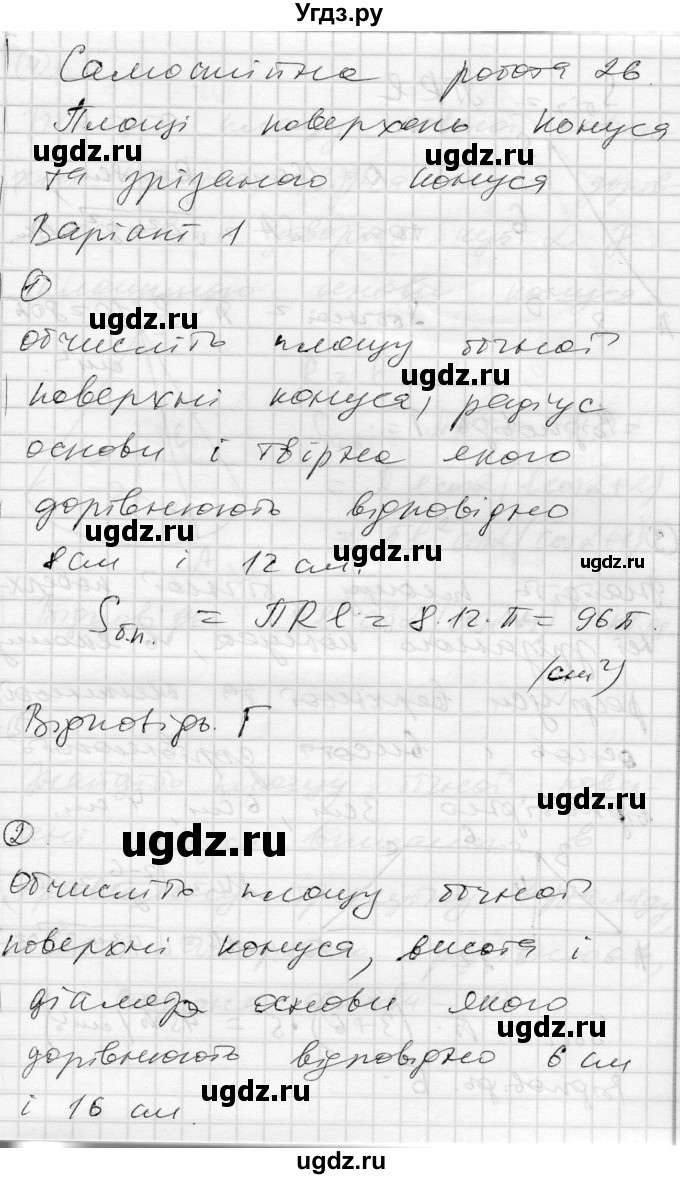 Угдз.ру
Самостійна робота 26.
Площі поверхонь конуса
ugdz.ru ugdz.ru
та зрізаного конуса
Варіант 1
1
ugdz.ru
Обчисліть площу бічної
ugdz.ru
поверхні конуса, радіус
основи і твірна якого
дорівнюють відповідно
ugdz.ru
8 см і 12 см.
ugdz.ru
Sб.п. = ПRl = 8·12·π = 96π.
(см²)
Відповідь. Г
ugdz.ru
2
ugdz.ru
Обчисліть площу бічної
поверхні конуса, висота і
діаметр основи якого
ugdz.ru
дорівнюють відповідно 6 см
ugdz.ru
і 16 см.
ugdz.ru